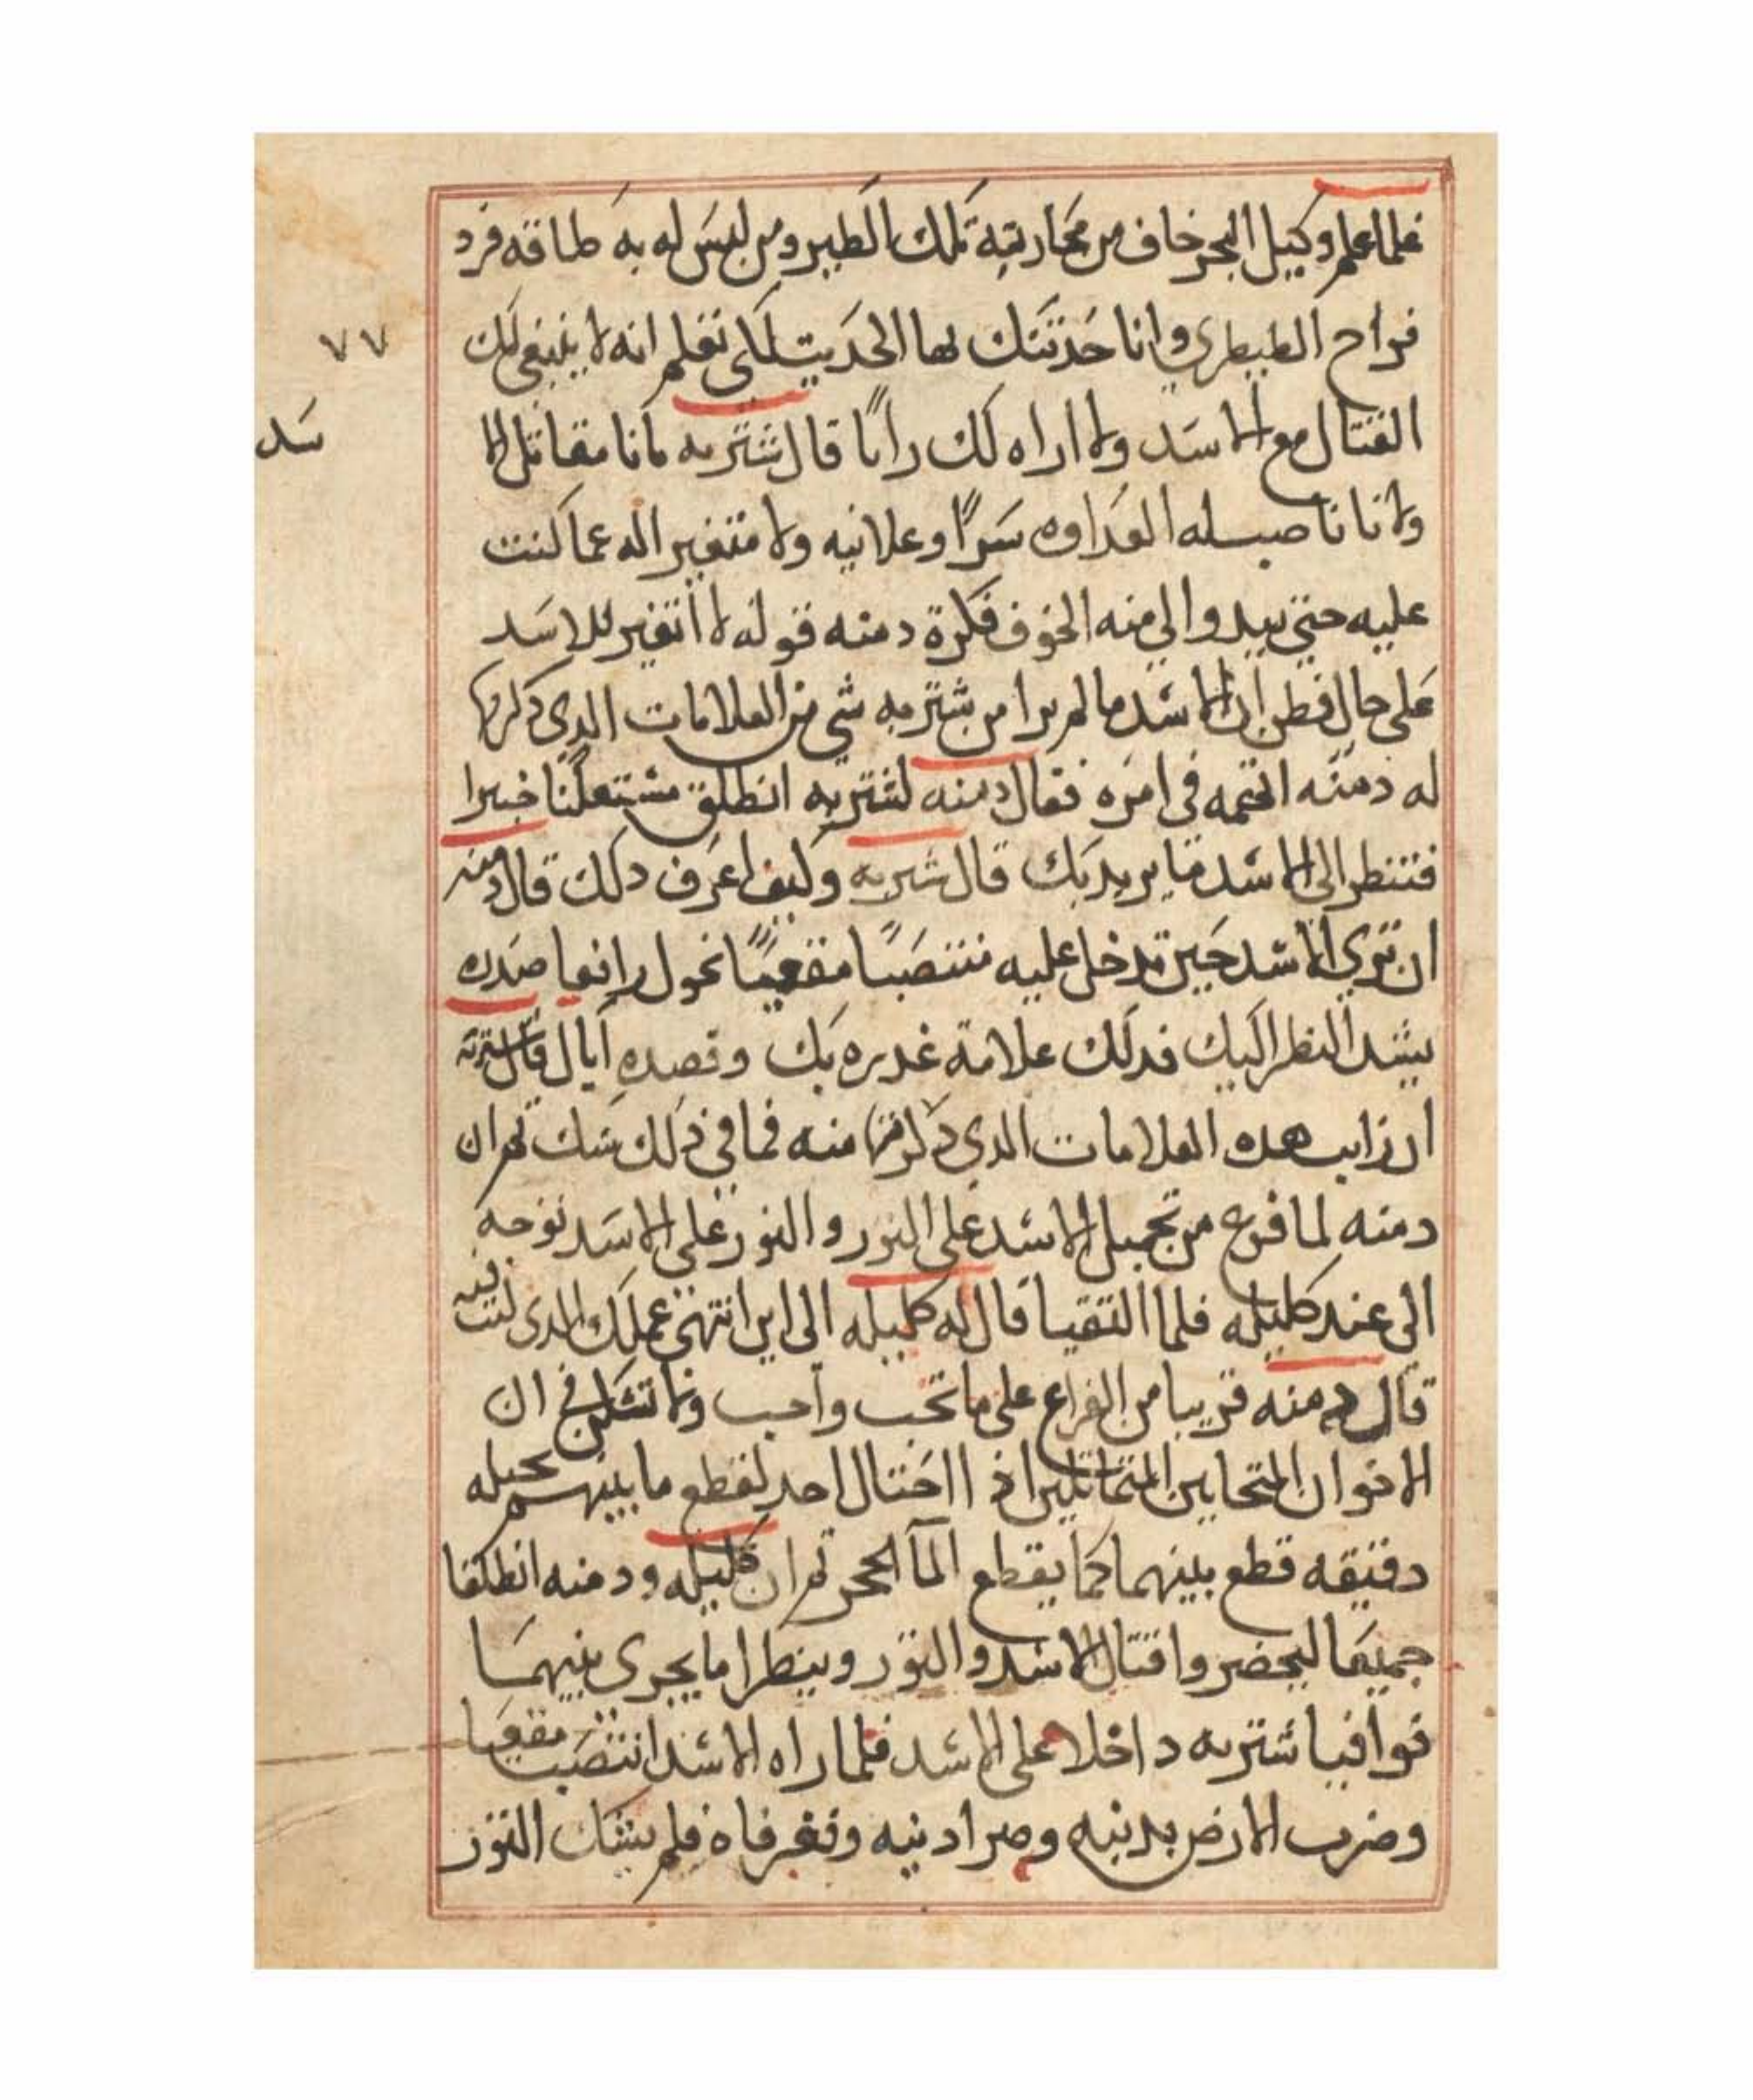 فلما علم وكيل البحر خاف من محاربته تلك الطير ومن ليس له به طاقه فرد
فراح الطيطري وانا حدثتك لها الحديت لكي تعلم انه لا ينبغي لك
٧٧
القتال مع الاسد ولا اراه لك رايا قال شتربه ما نا مقاتل الا
سد
ولا نا ناصبله العداوه سرا وعلانيه ولا متغير اله عما كنت
عليه حتي يبدوا لي منه الخوف فكرة دمنه قوله لا اتغير للاسد
على حال فظن ان الاسد ما لم يرا من شتربه شي من العلامات الدي دكرها
له دمنه اتهمه في امره فقال دمنه لشتربه انطلق خبيرا
فتنظر الى الاسد ما يريد بك قال شتربه وكيف اعرف دلك قال دمنه
ان تري الاسد حين تدخل عليه منتصبا مقعيا نحول رافعا صدره
يشد النظر اليك فدلك علامة غدره بك وقصده ايال قال شتربه
ان رايت هده العلامات الدي ذكرتها منه فما في ذلك شك ثم ان
دمنه لما فرغ من تحميل الاسد على الثور والثور على الاسد توجه
الى عند كليله فلما التقيا قال له كليله الى اين انتهى عملك الدى كنت فيه
قال دمنه قريبا من الفراغ على ما تحب واحب ولا تشكن في ان
الاخوان المتحابين اذ ااختال احد لقطع ما بينهم بحيله
دقيقه قطع بينهما كما يقطع الما الحجر ثم ان كليله ودمنه انطلقا
جميعا ليحضر واقتال الاسد والثور وينظرا ما يجرى بينهما
فوافيا شتربه داخلا على الاسد فلما راه الاسد انتصب مقعيا
وضرب الارض بدنبه وصر ادنيه وتغر فاه فلم يشك الثور